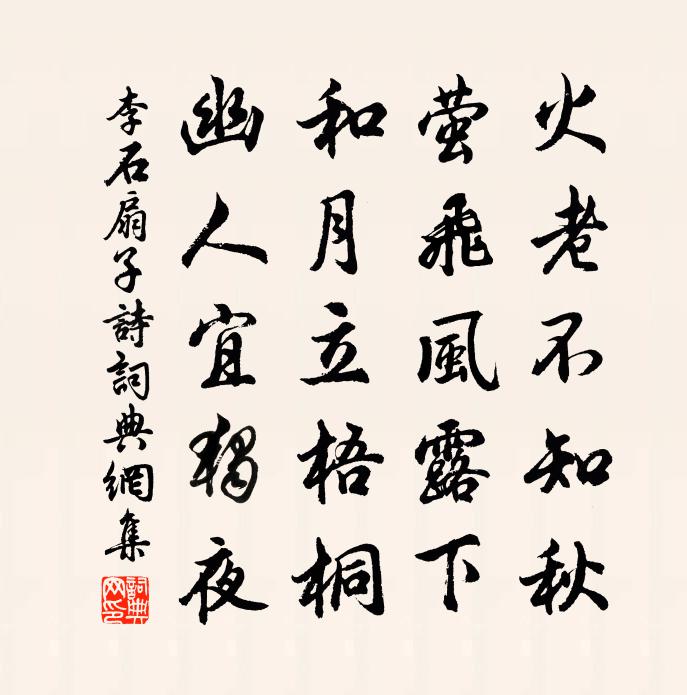 火老不知秋
萤飛風露下
和月立梧桐
幽人宜獨夜
李石扇子詩詞典網集
詞典网印